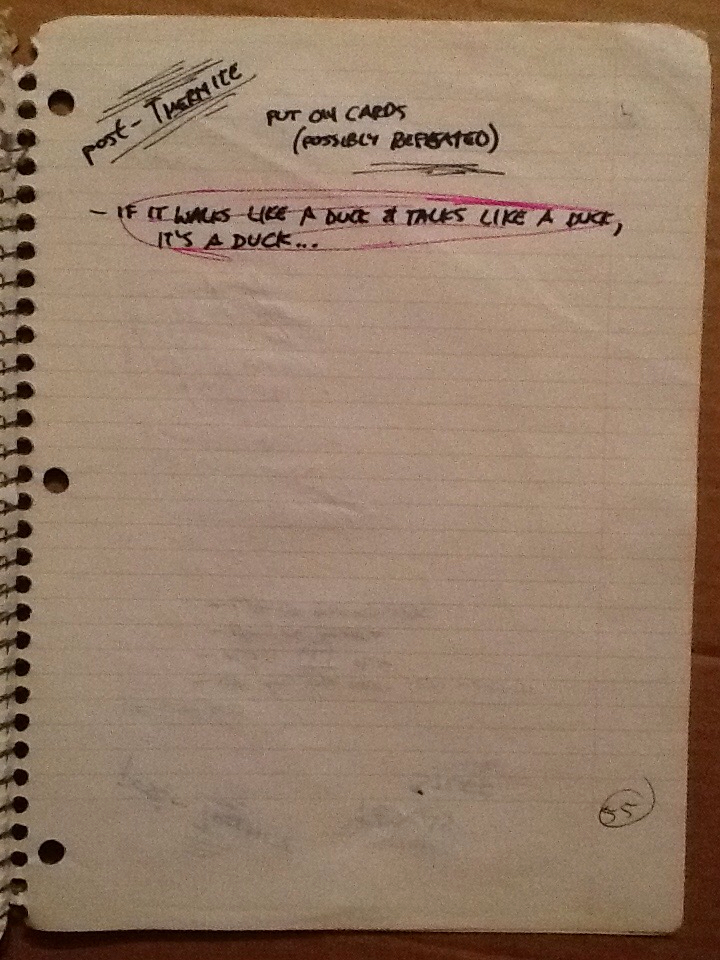 post-THERMITE
PUT ON CARDS
(POSSIBLY REPEATED)
- IF IT WALKS LIKE A DUCK & TALKS LIKE A DUCK,
IT'S A DUCK...
55